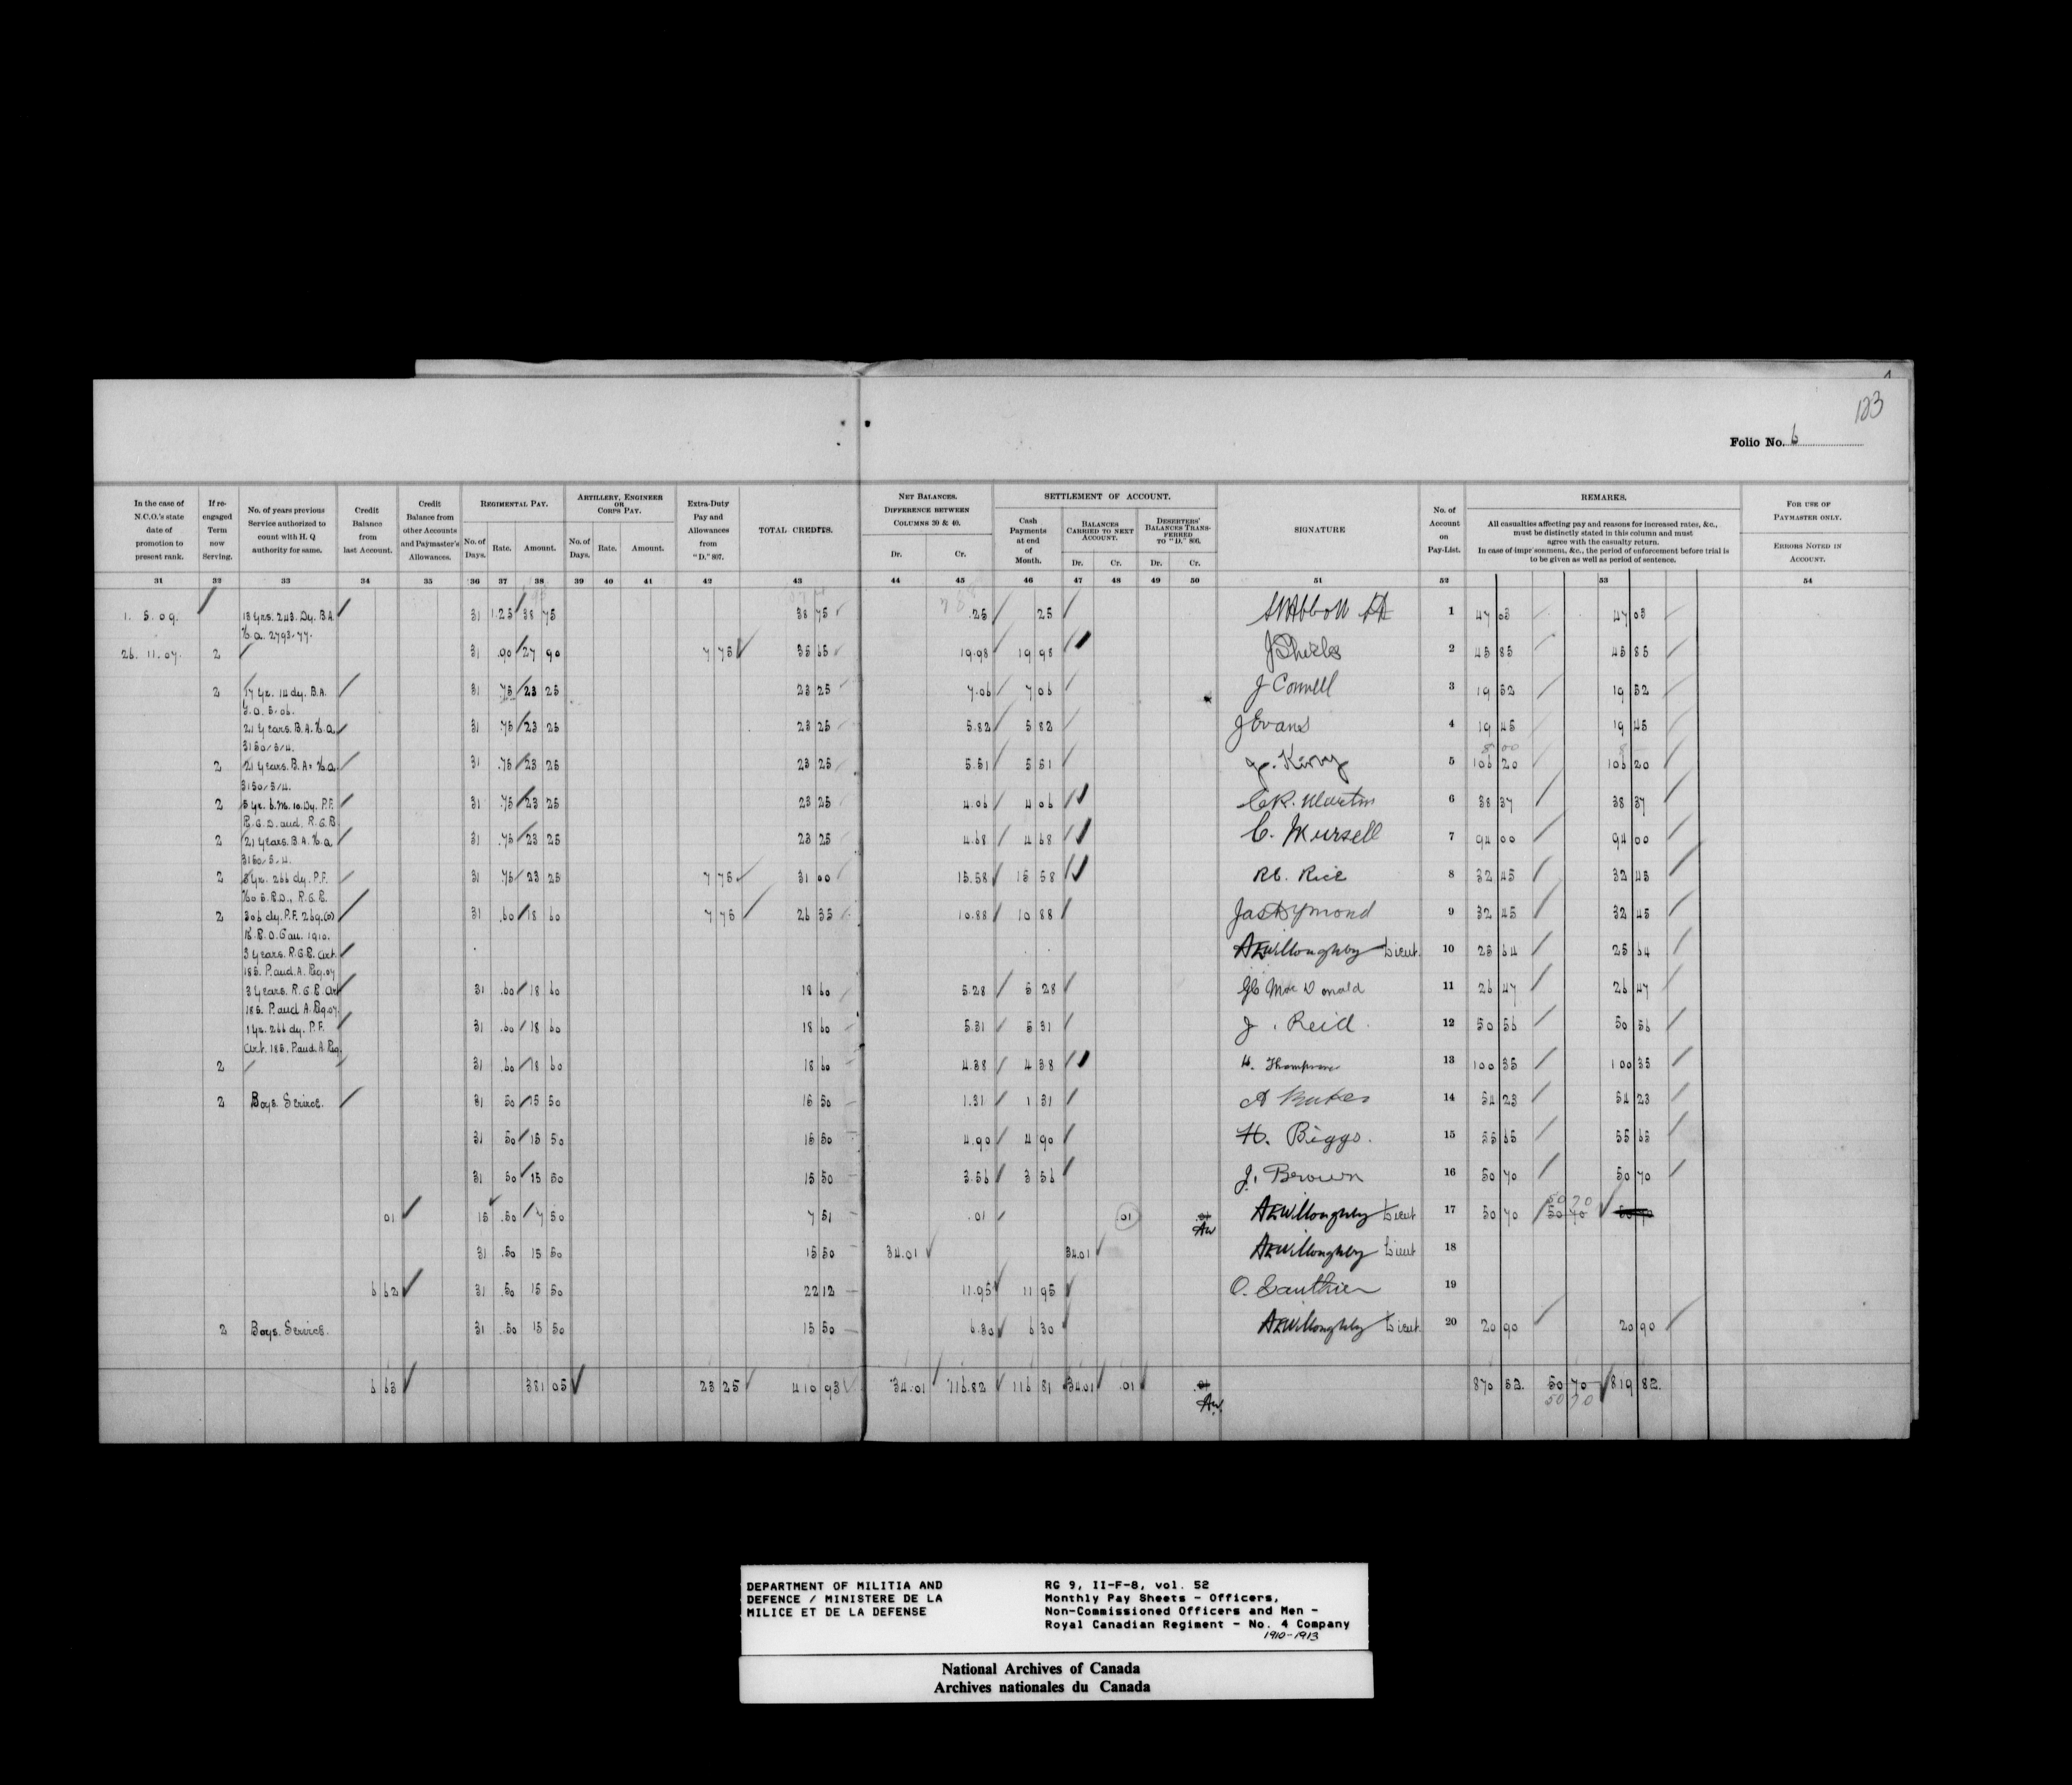 123
Folio No. 6
In the case of N.C.O.'s state date of promotion to present rank.
If re-engaged Term now Serving.
No. of years previous Service authorized to count with H. Q authority for same.
Credit Balance from last Account.
Credit Balance from other Accounts and Paymaster's Allowances.
REGIMENTAL PAY.
No. of Days. Rate. Amount.
ARTILLERY, ENGINEER OR CORPS PAY.
No. of Days. Rate. Amount.
Extra-Duty Pay and Allowances from "D." 807.
TOTAL CREDITS.
NET BALANCES. DIFFERENCE BETWEEN COLUMNS 30 & 40.
Dr. Cr.
SETTLEMENT OF ACCOUNT.
Cash Payments at end of Month.
BALANCES CARRIED TO NEXT ACCOUNT.
Dr. Cr.
DESERTERS' BALANCES TRANSFERRED TO "D." 806.
Dr. Cr.
SIGNATURE
No. of Account on Pay-List.
REMARKS.
All casualties affecting pay and reasons for increased rates, &c.,
must be distinctly stated in this column and must
agree with the casualty return.
In case of impr'sonment, &c., the period of enforcement before trial is
to be given as well as period of sentence.
FOR USE OF PAYMASTER ONLY.
ERRORS NOTED IN ACCOUNT.
31 32 33 34 35 36 37 38 39 40 41 42 43 44 45 46 47 48 49 50 51 52 53 54
1. 5. 09. 18 yrs. 243. Dy. B.A. 31 1.25 38 75 38 75 .25 25 1 47 03 47 03
H.Q. 2793-77.
26. 11. 07. 2 31 .90 27 90 7 75 35 65 19.98 19 98 J Shields 2 45 85 45 85
2 17 yr. 14 dy. B.A. 31 .75 23 25 23 25 7.06 7 06 J Connell 3 19 52 19 52
G.O. 5.06.
21 years. B.A. H.Q. 31 .75 23 25 23 25 5.82 5 82 J Evans 4 19 45 19 45
3150/5/4.
8 00
2 21 years. B.A. H.Q. 31 .75 23 25 23 25 5.51 5 51 J. Kirby 5 106 20 106 20
3150/5/4.
2 5 yr. 6. M. 10. Dy. P.F. 31 .75 23 25 23 25 4.06 4 06 C.R. Martin 6 38 37 38 37
R.G.D. and. R.G.B
2 21 years. B.A. H.Q. 31 .75 23 25 23 25 4.68 4 68 C. Mursell 7 94 00 94 00
3150/5/4.
2 yr. 266 dy. P.F. 31 .75 23 25 7 75 31 00 15.58 15 58 RC. Rice 8 32 45 32 45
2 306 dy. P.F. 31 .60 18 60 7 75 26 35 10.88 10 88 Jas Dymond 9 32 45 32 45
1910.
3 years. R.G.E. Art. AEWilloughby Lieut. 10 25 64 25 64
185. P. and. A. Reg. 07
3 years. R.G.E. Art 31 .60 18 60 18 60 5.28 5 28 Mac Donald 11 26 47 26 47
185. P. and A. Reg. 07.
1 yr. 266 dy. P.F. 31 .60 18 60 18 60 5.31 5 31 J. Reid. 12 50 56 50 56
Art. 185. P. and. A. Reg.
2 31 .60 18 60 18 60 4.38 4 38 H. Thompson 13 100 35 100 35
2 Boys. Serivce. 31 50 15 50 15 50 1.31 1 31 14 54 23 54 23
31 50 15 50 15 50 4.90 4 90 H. Biggs. 15 55 65 55 65
31 50 15 50 15 50 3.56 3 56 J. Brown 16 50 70 50 70
50 70
01 15 .50 7 50 7 51 .01 01 .01 AEWilloughby Lieut 17 50 70 50 70 50 70
AW
31 .50 15 50 15 50 34.01 34.01 AEWilloughby Lieut 18
6 62 31 .50 15 50 22 12 11.95 11 95 O. Gauthier 19
2 Boys. Service. 31 .50 15 50 15 50 6.30 6 30 AEWilloughby Lieut. 20 20 90 20 90
6 63 381 05 23 25 410 93 34.01 116.82 116 81 34.01 .01 .01 870 52. 50 70 819 82.
AW. 50 70
DEPARTMENT OF MILITIA AND
DEFENCE / MINISTERE DE LA
MILICE ET DE LA DEFENSE
RG 9, II-F-8, vol. 52
Monthly Pay Sheets - Officers,
Non-Commissioned Officers and Men -
Royal Canadian Regiment - No. 4 Company
1910-1913
National Archives of Canada
Archives nationales du Canada